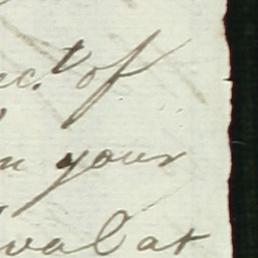 ec.t of
n your
val at